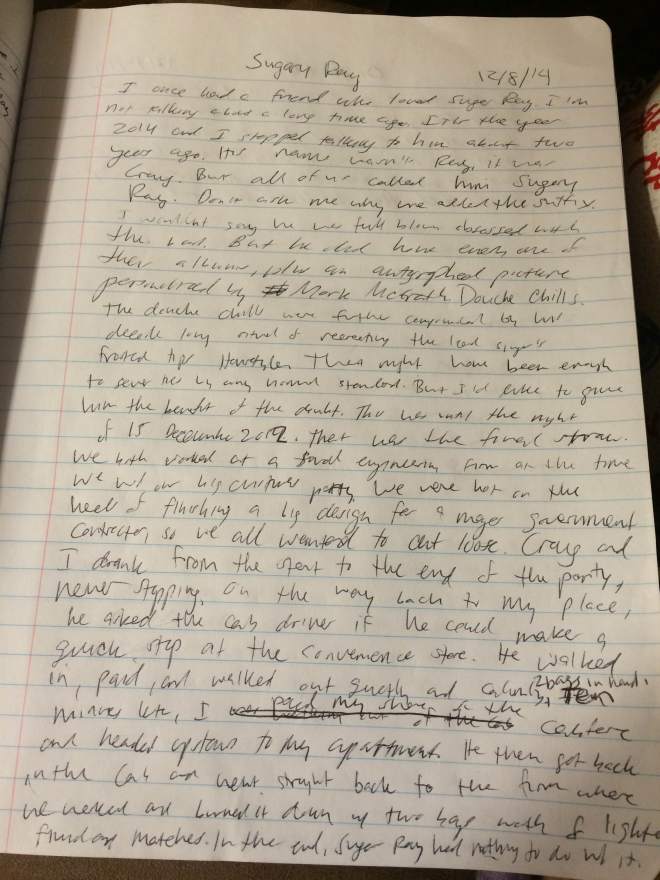 Sugary Ray 12/8/14
I once had a friend who loved Sugar Ray. I'm
not talking about a long time ago. It's the year
2014 and I stopped talking to him about two
years ago. His name wasn't Ray, it was
Craig. But all of us called him Sugary
Ray. Don't ask me why we added the suffix.
I wouldn't say he was full blown obsessed with
the band. But he did have every one of
their albums, plus an autographed picture
personalized by Mark McGrath. Douche Chills.
The douche chills were further compounded by his
decade long ritual of recreating the lead singer's
frosted tips hairstyle. That might have been enough
to sever ties by any normal standard. But I'd like to give
him the benefit of the doubt. This was until the night
of 15 December 2012. That was the final straw.
We both worked at a small engineering firm at the time
We had our big christmas party. We were hot on the
heels of finishing a big design for a major government
contractor, so we all wanted to cut loose. Craig and
I drank from the start to the end of the party,
never stopping. On the way back to my place,
he asked the cab driver if he could make a
quick stop at the convenience store. He walked
in, paid, and walked out quietly and calmly, 2 bags in hand. Ten
minutes later, I paid my share of the cab fare
and headed upstairs to my apartment. He then got back
in the cab and went straight back to the firm where
we worked and burned it down w/ two bags worth of lighter
fluid and matches. In the end, Sugar Ray had nothing to do w/ it.